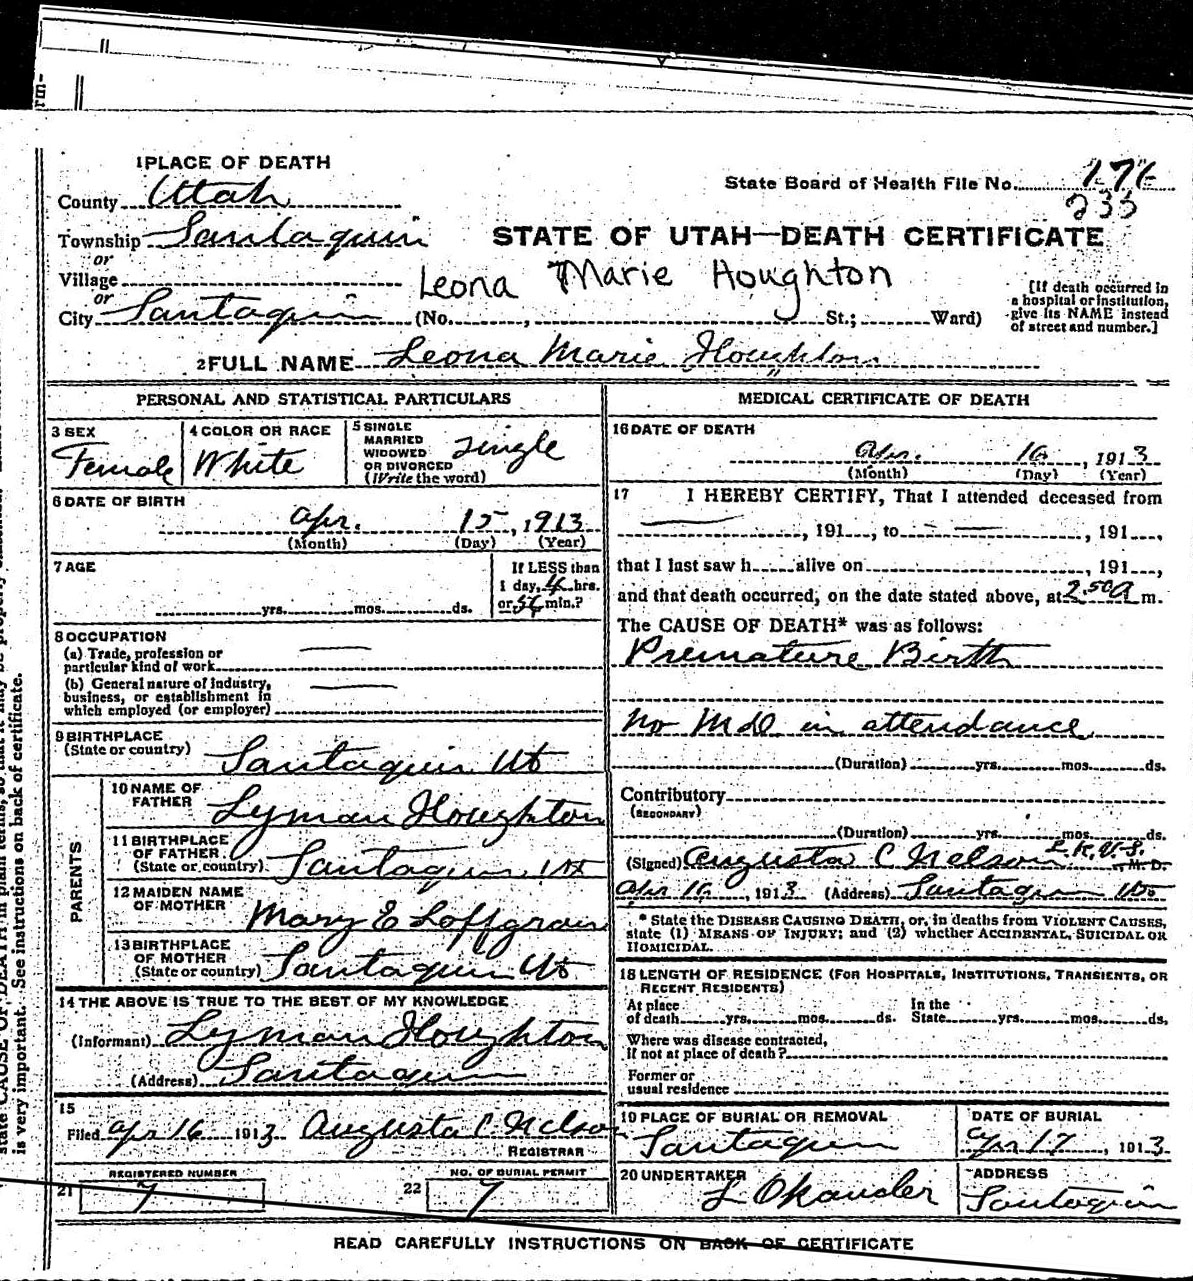 1 PLACE OF DEATH
County Utah
State Board of Health File No. 176
233
Township Santaquin
STATE OF UTAH—DEATH CERTIFICATE
or
Village
Leona Marie Houghton
or
City Santaquin (No. , St.; Ward)
[If death occurred in
a hospital or institution,
give its NAME instead
of street and number.]
2 FULL NAME Leona Marie Houghton
PERSONAL AND STATISTICAL PARTICULARS
3 SEX
Female
4 COLOR OR RACE
White
5 SINGLE
MARRIED
WIDOWED
OR DIVORCED
(Write the word)
Single
6 DATE OF BIRTH
Apr. 15, 1913
(Month) (Day) (Year)
7 AGE
yrs. mos. ds.
If LESS than
1 day, 4 hrs.
or min.?
8 OCCUPATION
(a) Trade, profession or
particular kind of work
(b) General nature of industry,
business, or establishment in
which employed (or employer)
9 BIRTHPLACE
(State or country) Santaquin Ut
PARENTS
10 NAME OF
FATHER Lyman Houghton
11 BIRTHPLACE
OF FATHER
(State or country) Santaquin, Ut
12 MAIDEN NAME
OF MOTHER Mary E Loffgran
13 BIRTHPLACE
OF MOTHER
(State or country) Santaquin Ut
14 THE ABOVE IS TRUE TO THE BEST OF MY KNOWLEDGE
(Informant) Lyman Houghton
(Address) Santaquin
15
Filed Apr 16 1913 Augusta C Nelson
REGISTRAR
REGISTERED NUMBER
21 7
NO. OF BURIAL PERMIT
22 7
MEDICAL CERTIFICATE OF DEATH
16 DATE OF DEATH
Apr. 16, 1913
(Month) (Day) (Year)
17 I HEREBY CERTIFY, That I attended deceased from
, 191 , to , 191 ,
that I last saw h alive on , 191 ,
and that death occurred, on the date stated above, at 2.50 a m.
The CAUSE OF DEATH* was as follows:
Premature Birth
No MD in attendance
(Duration) yrs. mos. ds.
Contributory
(SECONDARY)
(Duration) yrs. mos. ds.
(Signed) Augusta C Nelson L.R.V.S. , M. D.
Apr 16, 1913 (Address) Santaquin Ut
* State the DISEASE CAUSING DEATH, or, in deaths from VIOLENT CAUSES,
state (1) MEANS OF INJURY; and (2) whether ACCIDENTAL, SUICIDAL OR
HOMICIDAL.
18 LENGTH OF RESIDENCE (FOR HOSPITALS, INSTITUTIONS, TRANSIENTS, OR
RECENT RESIDENTS)
At place
of death yrs. mos. ds.
In the
State yrs. mos. ds.
Where was disease contracted,
if not at place of death?
Former or
usual residence
19 PLACE OF BURIAL OR REMOVAL
Santaquin
DATE OF BURIAL
Apr 17, 1913
20 UNDERTAKER
ADDRESS
Santaquin
READ CAREFULLY INSTRUCTIONS ON BACK OF CERTIFICATE
is very important. See instructions on back of certificate.